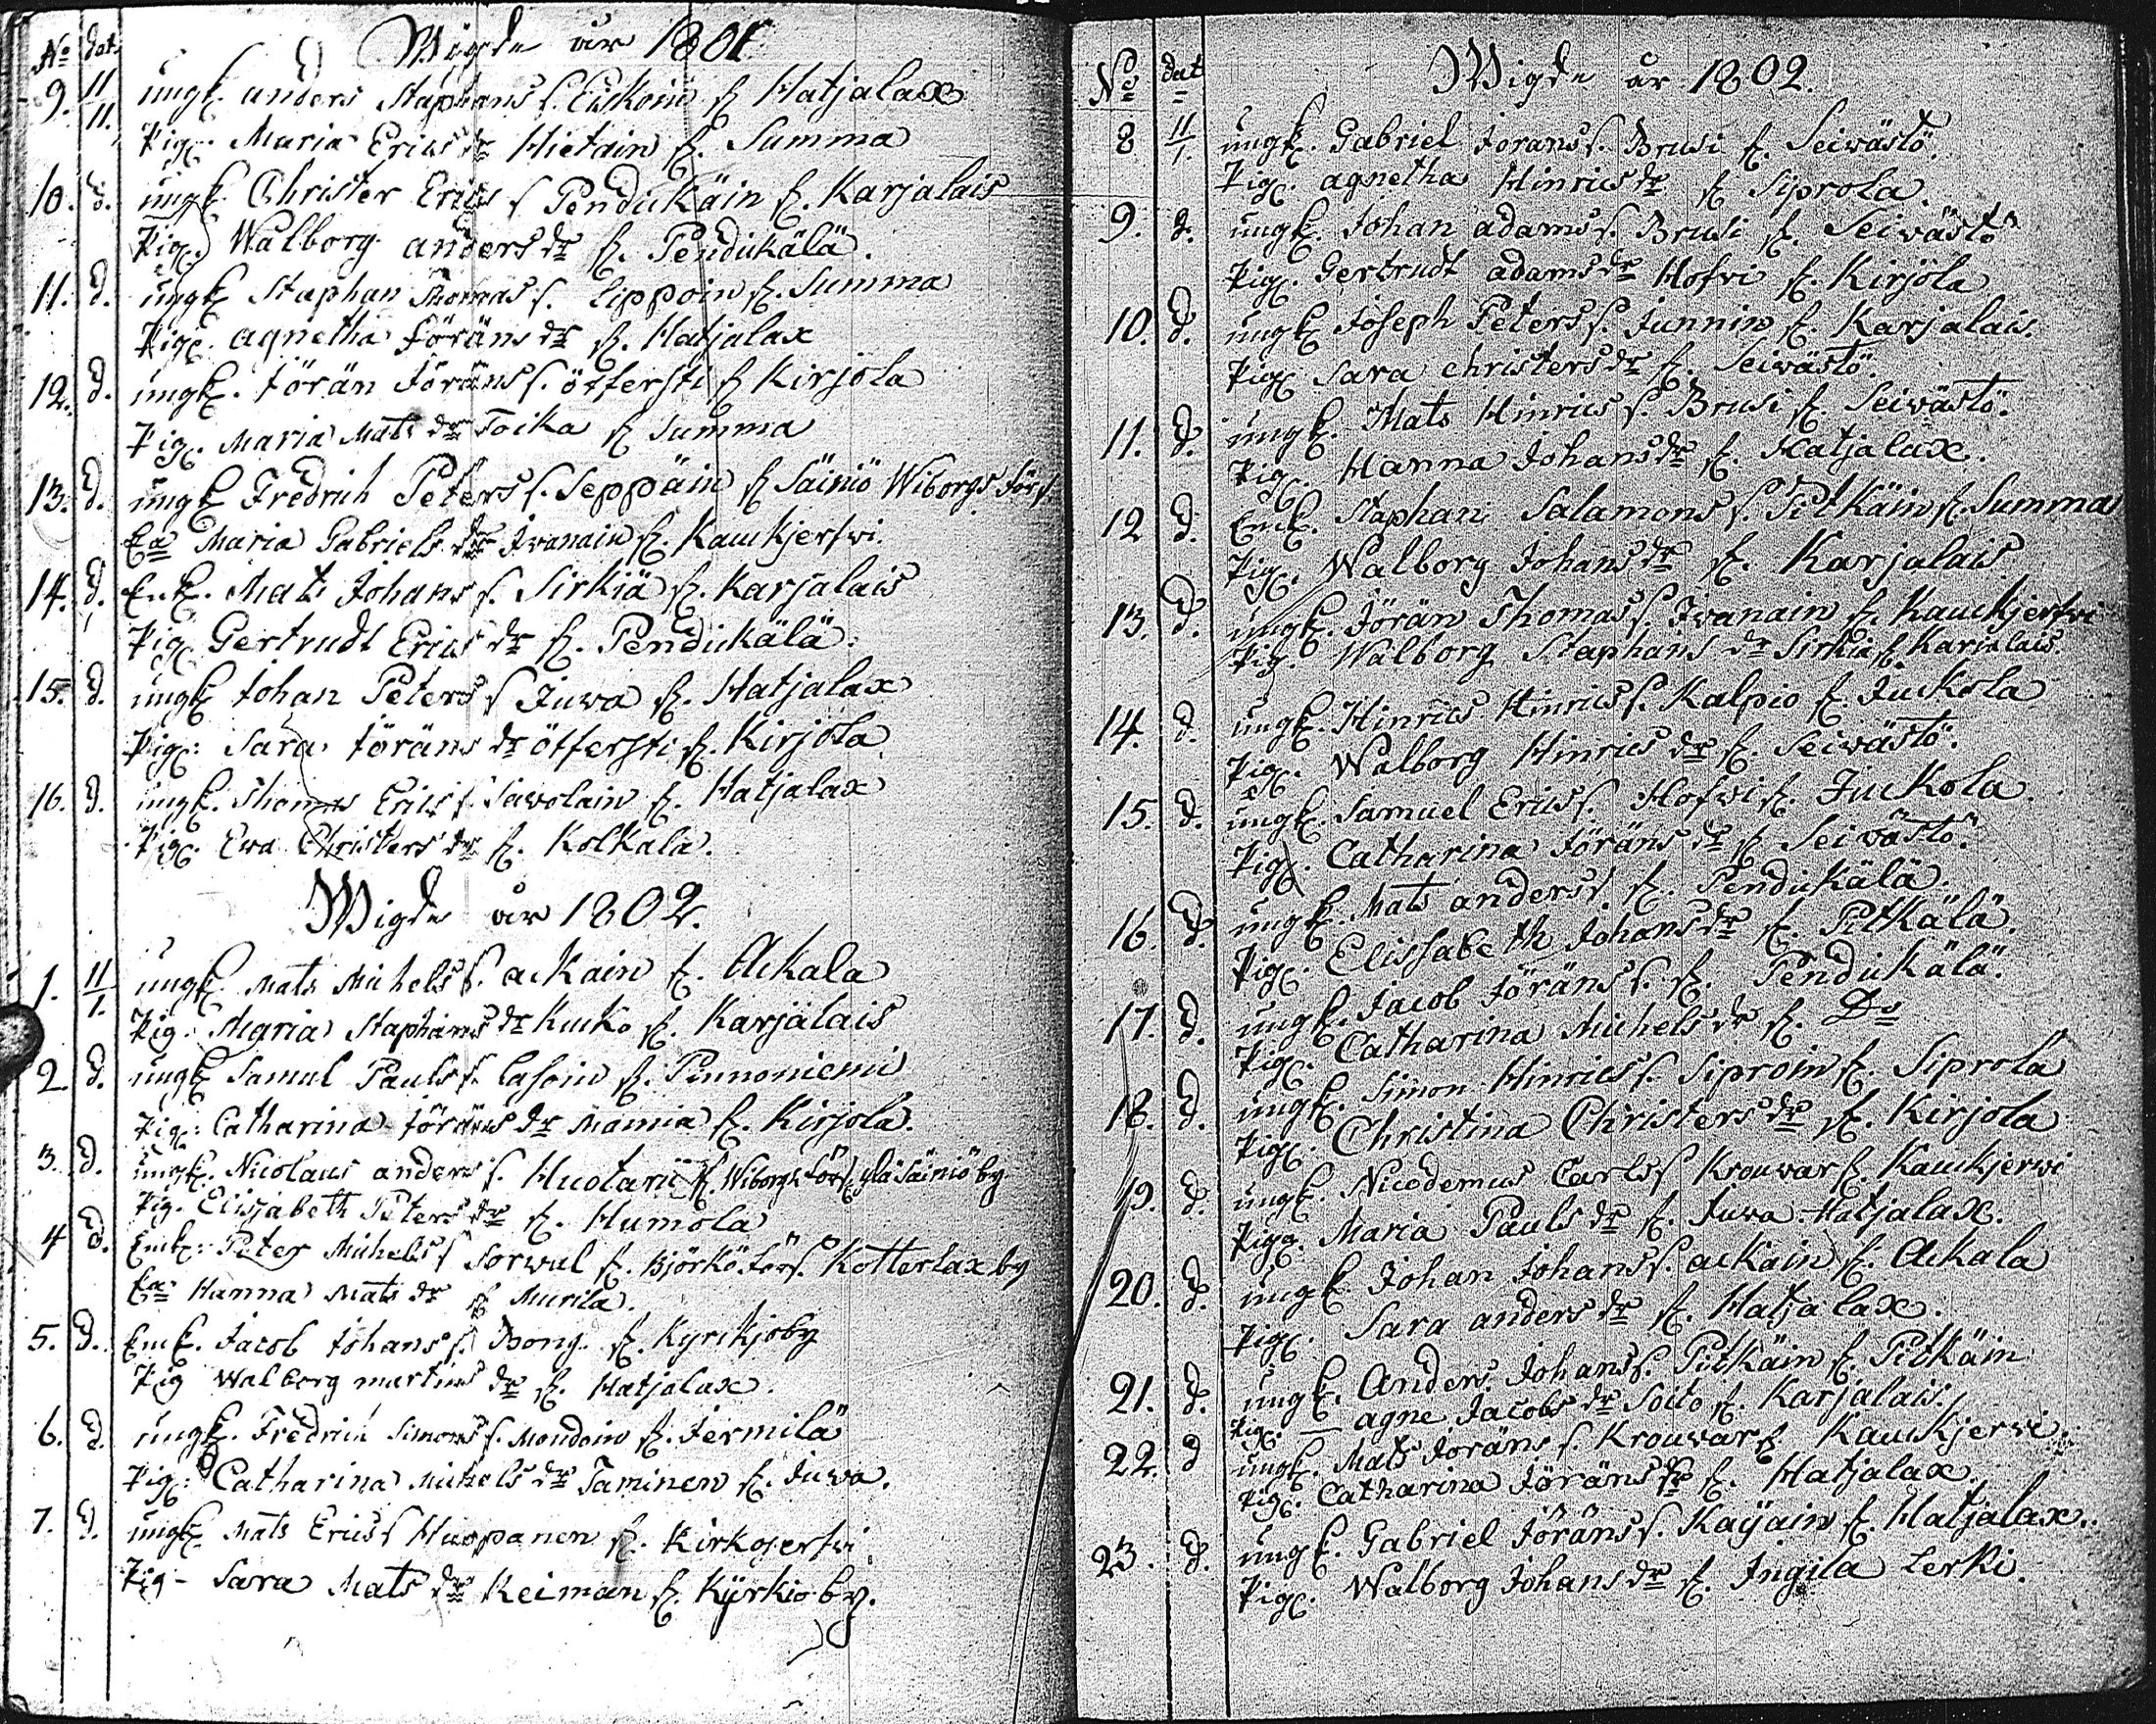 No dat. Wigde år 1801.
9. 11/11. ungk anders Staphans s. Eüskoin f Hatjalax
Pig. Maria Erics dr Hietain f. Summa
10. d. ungk Christer Erics s Pendikäin f. Karjalais
Pig. Walborg anders dr f. Pendikälä.
11. d. ungk Staphan Thomas s. Lippoin f. Summa
Pig. agnetha Göräns dr f. Hatjalax
12. d. ungk. Jörän Jöräns s. öttersti f Kirjola
Pig. Maria Mats dr Toika f Summa
13. d. ungk Fredrich Peters s. Seppäin f Säiniö Wiborgs förs.
Ea Maria Gabriels dr Iwanain f. Kauckjerfwi.
14. d. Enk. Mats Johans s. Sirkiä f. Karjalais
Pig Gertrudt Erics dr f. Pendikälä.
15. d. ungk Johan Peters s Juwa f. Hatjalax
Pig. Sara Jöräns dr öttersti f. Kirjola
16. d. ungk. Thomas Erics s. Sawolain f. Hatjalax
Pig. Ewa Christers dr f. Kolkala.
Wigde år 1802.
1. 11/1. ungk Mats Michels s. ackain f. Ackala
Pig. Maria Staphans dr Kucko f. Karjälais
2 d. ungk Samul Pauls s. Lasoin f. Pinnoniemi
Pig. Catharina Jöräns dr Mannia f. Kirjola.
3. d. ungk. Nicolaus anders s. Huotari f. Wiborgs förs. Säiniö by
Pig. Elisabeth Peters dr f. Humola
4 d. Enk. Peter Michels s Sorwal f. Björkö förs. Kotterlax by
Ea Hanna Mats dr f Murila.
5. d. Enk. Jacob Johans s. Bong f. Kyrckjoby
Pig Walborg martins dr f. Hatjalax.
6. d. ungk. Fredrich Simons s. Mondoin f. Jermilä
Pig. Catharina Michels dr Taminen f. Juwa.
7. d. ungk Mats Erics s Huoppanen f. Kirkojerfwi
Pig - Sara Mats dr Reiman f. Kyrkioby.
No dat Wigde år 1802.
8 11/1. ungk. Gabriel Jorans s. Brusi f. Seiwästö.
Pig. agnetha Hinrics dr f Syprola.
9. d. ungk. Johan adams s. Brusi f. Seiwästö
Pig. Gertrudt adams dr Hofwi f. Kirjöla
10. d. ungk Joseph Peters s. Junnin f. Karjalais.
Pig Sara christers dr f. Seiwästö.
11. d. ungk. Mats Hinrics s. Brusi f. Seiwästö.
Pig. Hanna Johans dr f. Hatjalax.
12 d. Enk. Staphan Salamons s. Pitkäin f. Summa
Pig. Walborg Johans dr f. Karjalais
13. d. ungk. Jörän Thomas s. Iwanain f. Kauckjerfwi
Pig. Walborg Staphans dr Sirkiä f. Karjalais.
14. d. ungk. Hinrics Hinrics s. Kalpio f. Juckola
Pig. Walborg Hinrics dr f. Seiwästö.
15. d. ungk. Samuel Erics s. Hofwi f. Juckola
Pig. Catharina Jöräns dr f Seiwästö.
16. d. ungk. Mats anders s. f. Pendikälä.
Pig. Elissabeth Johans dr f. Pitkälä.
17. d. ungk. Jacob Jöräns s. f. Pendikälä.
Pig. Catharina Michels dr f. Do
18. d. ungk. Simon Hinrics s. Siproin f. Siprola
Pig. Christina Christers dr f. Kirjola
19. d. ungk. Nicodemus Carls s Krouwar f. Kauckjerwi
Pig. Maria Pauls dr f. Juwa. Hatjalax.
20. d. ungk. Johan Johans s. ackain f. Ackala
Pig. Sara anders dr f. Hatjalax.
21. d. ungk. Anders Johans s. Pitkäin f. Pitkäin
Pig. — agne Jacobs dr Soito f. Karjalais.
22. d ungk. Mats Joräns s. Krouwar f. Kauckjerwi.
Pig. Catharina Jöräns dr f. Hatjalax.
23. d. ungk. Gabriel Jöräns s. Kaÿain f. Hatjalax.
Pig. Walborg Johans dr f. Ingila Lerki.